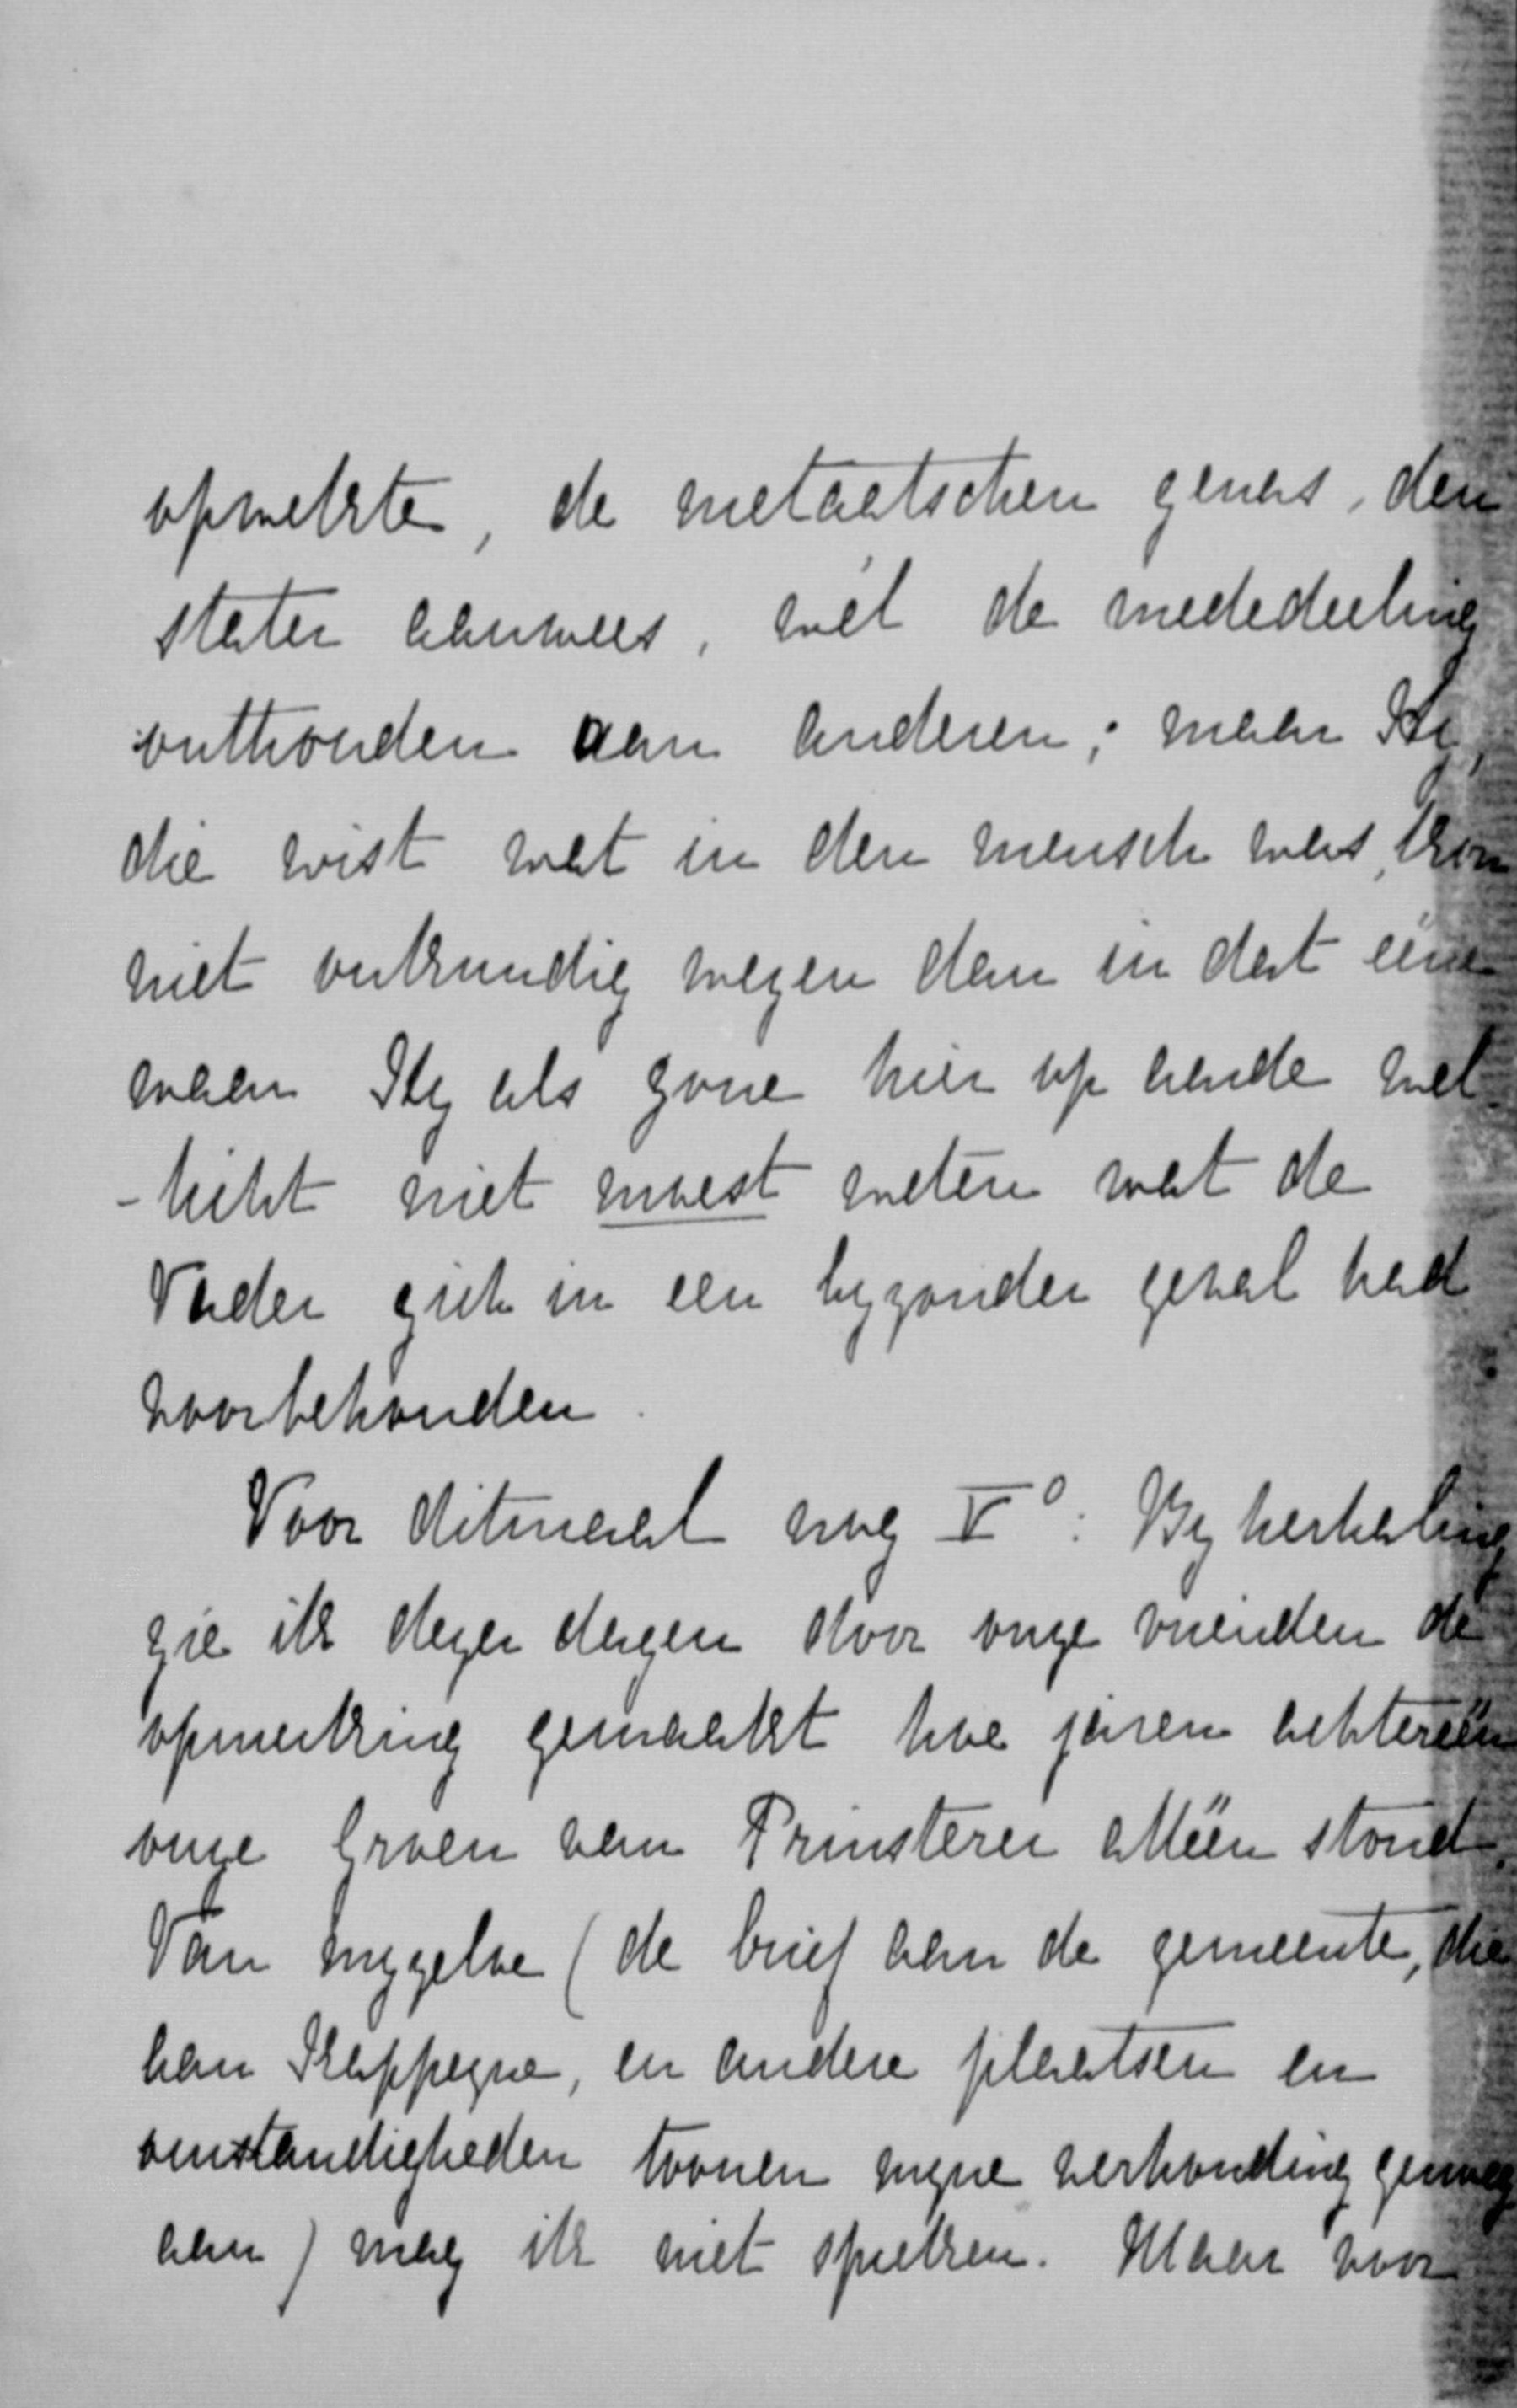 opwekte, de melaatschen genas, den
stater aanwees, wèl de mededeeling
onthouden aan anderen; maar Hy,
die wist wat in den mensch was, kon
niet onkundig wezen dan in dat ééne
waar Hy als Zone hier op aarde wel-
-licht niet moest weten wat de
Vader zich in een byzonder geval had
voorbehouden.
Voor ditmaal nog V°: By herhaling
zie ik dezer dagen door onze vrienden de
opmerking gemaakt hoe jaren achteréén
onze Groen van Prinsterer alléén stond.
Van myzelve (de brief aan de gemeente, die
aan Kappeyne, en andere plaatsen en
omstandigheden toonen myne verhouding genoeg
aan) mag ik niet spreken. Maar voor